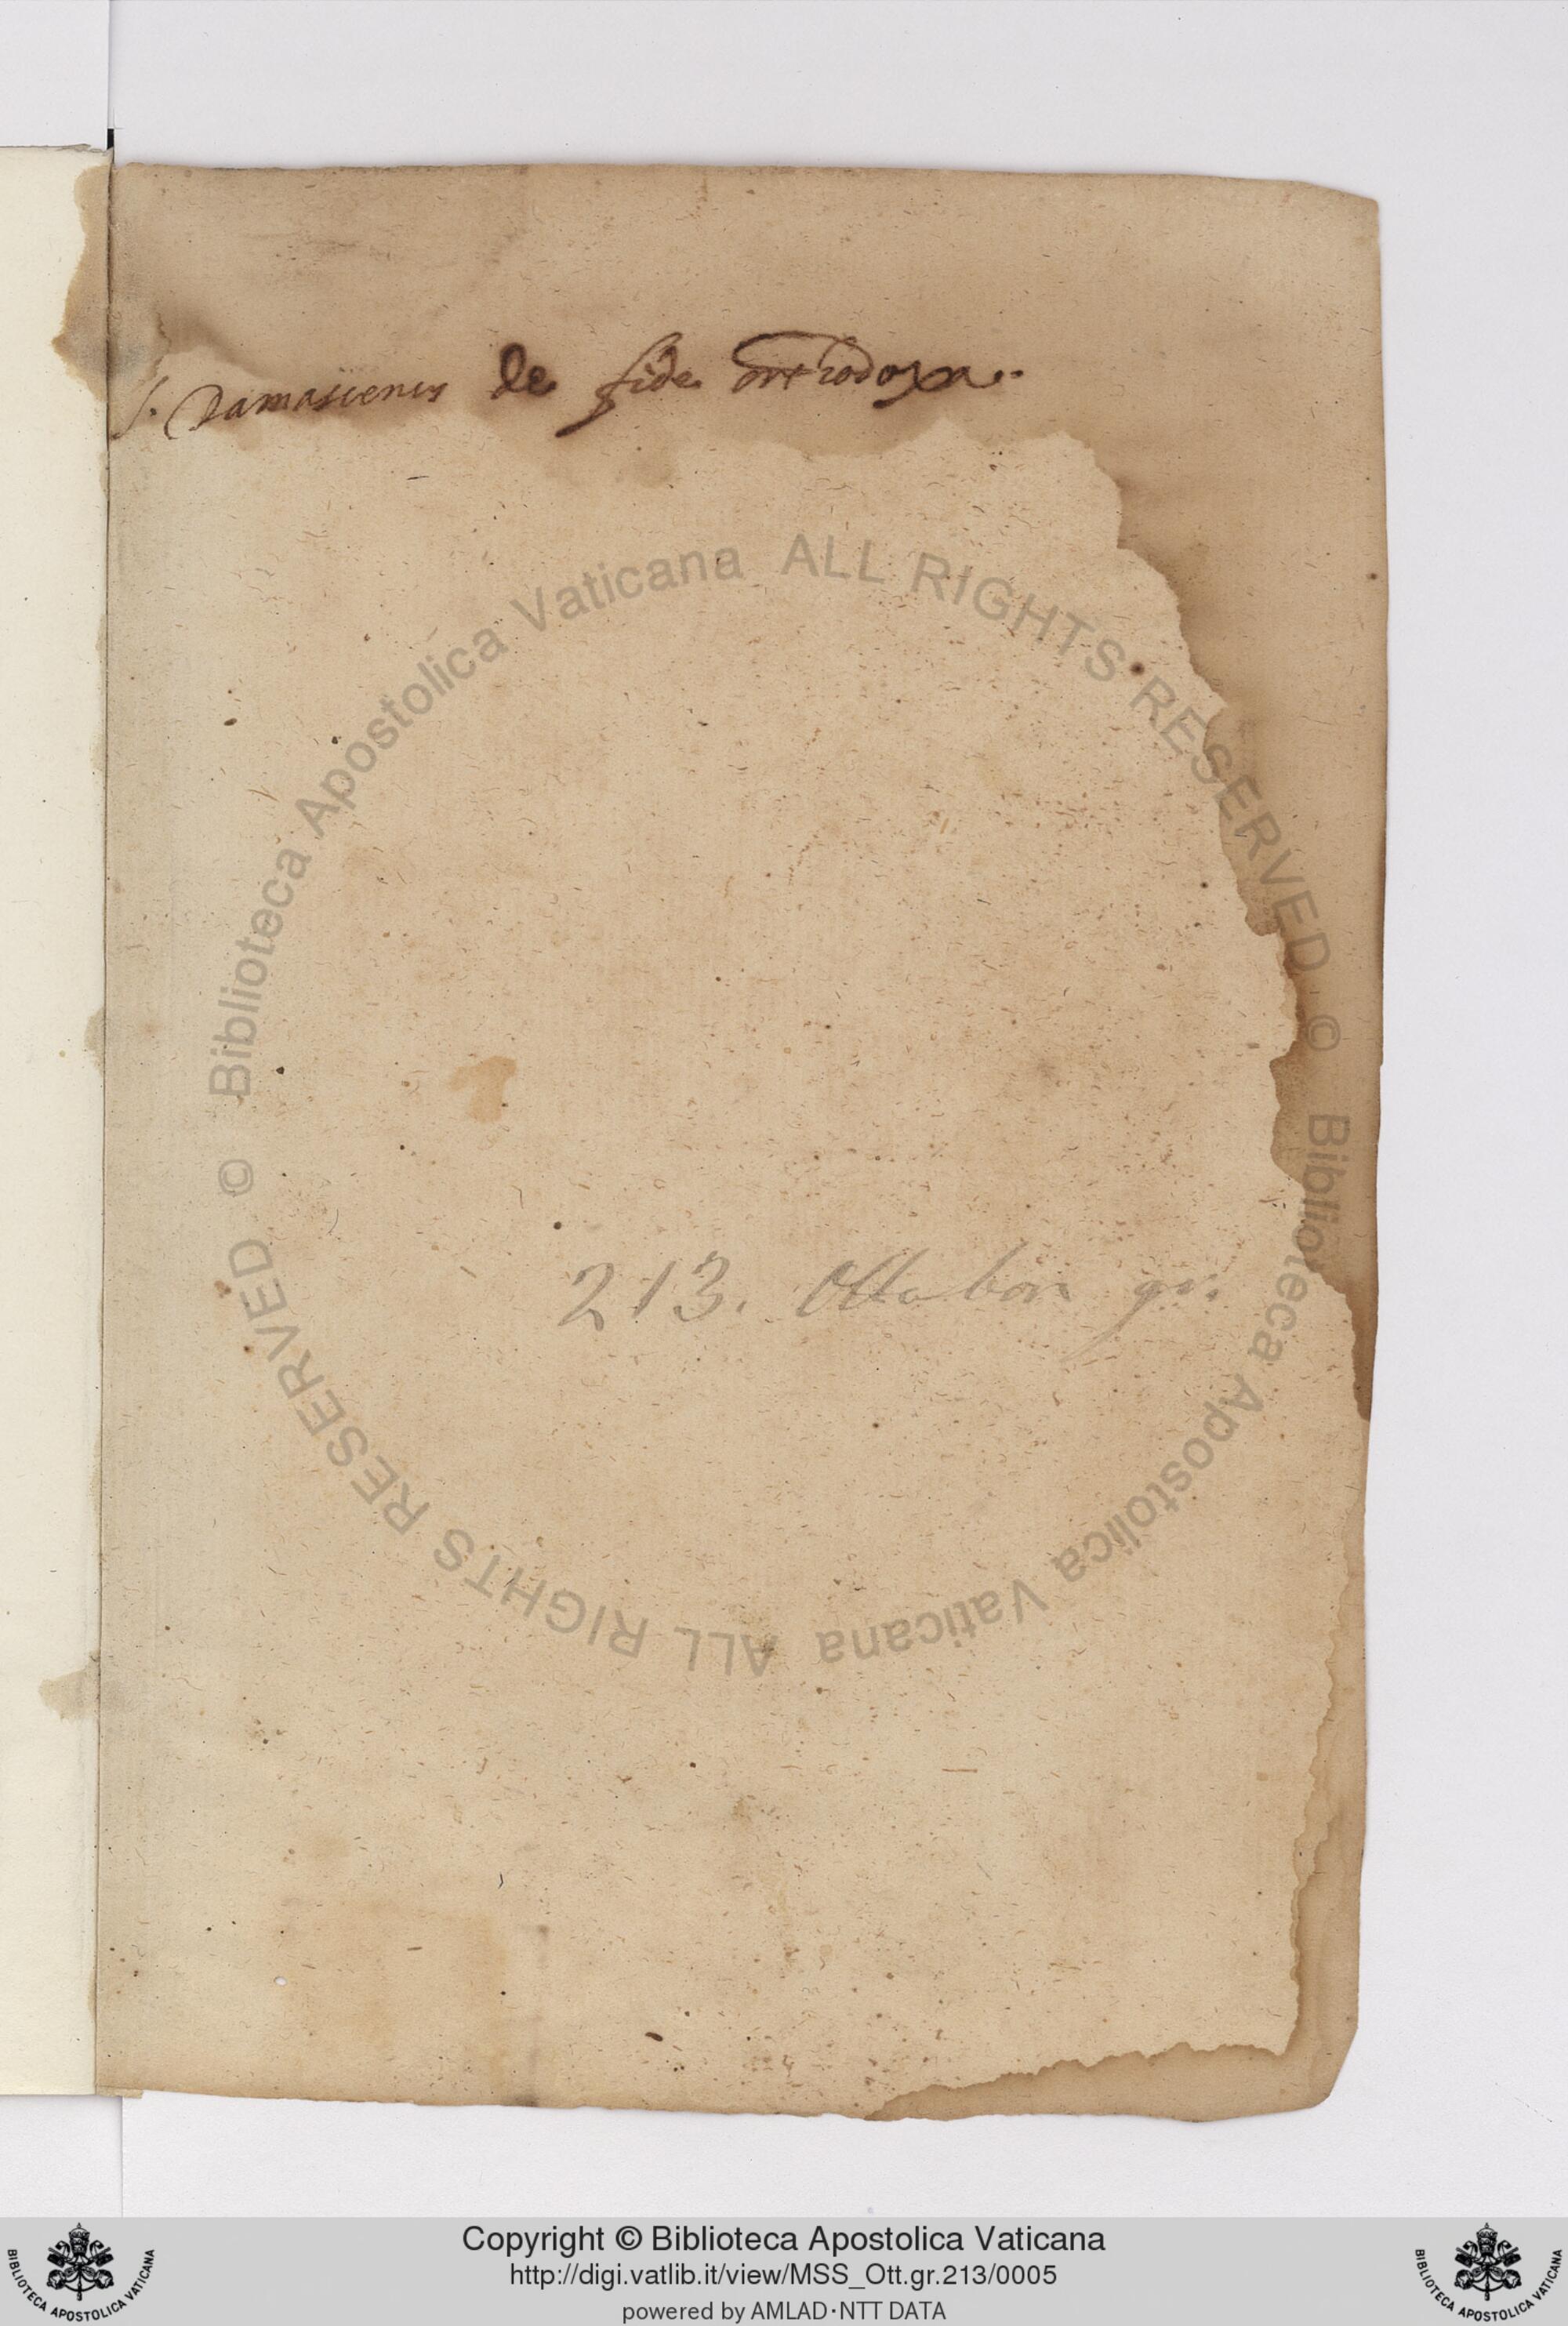 S. Damascenus de fide orthodoxa.
213. Ottobon gr.
© Biblioteca Apostolica Vaticana ALL RIGHTS RESERVED © Biblioteca Apostolica Vaticana ALL RIGHTS RESERVED
Copyright © Biblioteca Apostolica Vaticana
http://digi.vatlib.it/view/MSS_Ott.gr.213/0005
powered by AMLAD·NTT DATA
BIBLIOTECA APOSTOLICA VATICANA
BIBLIOTECA APOSTOLICA VATICANA